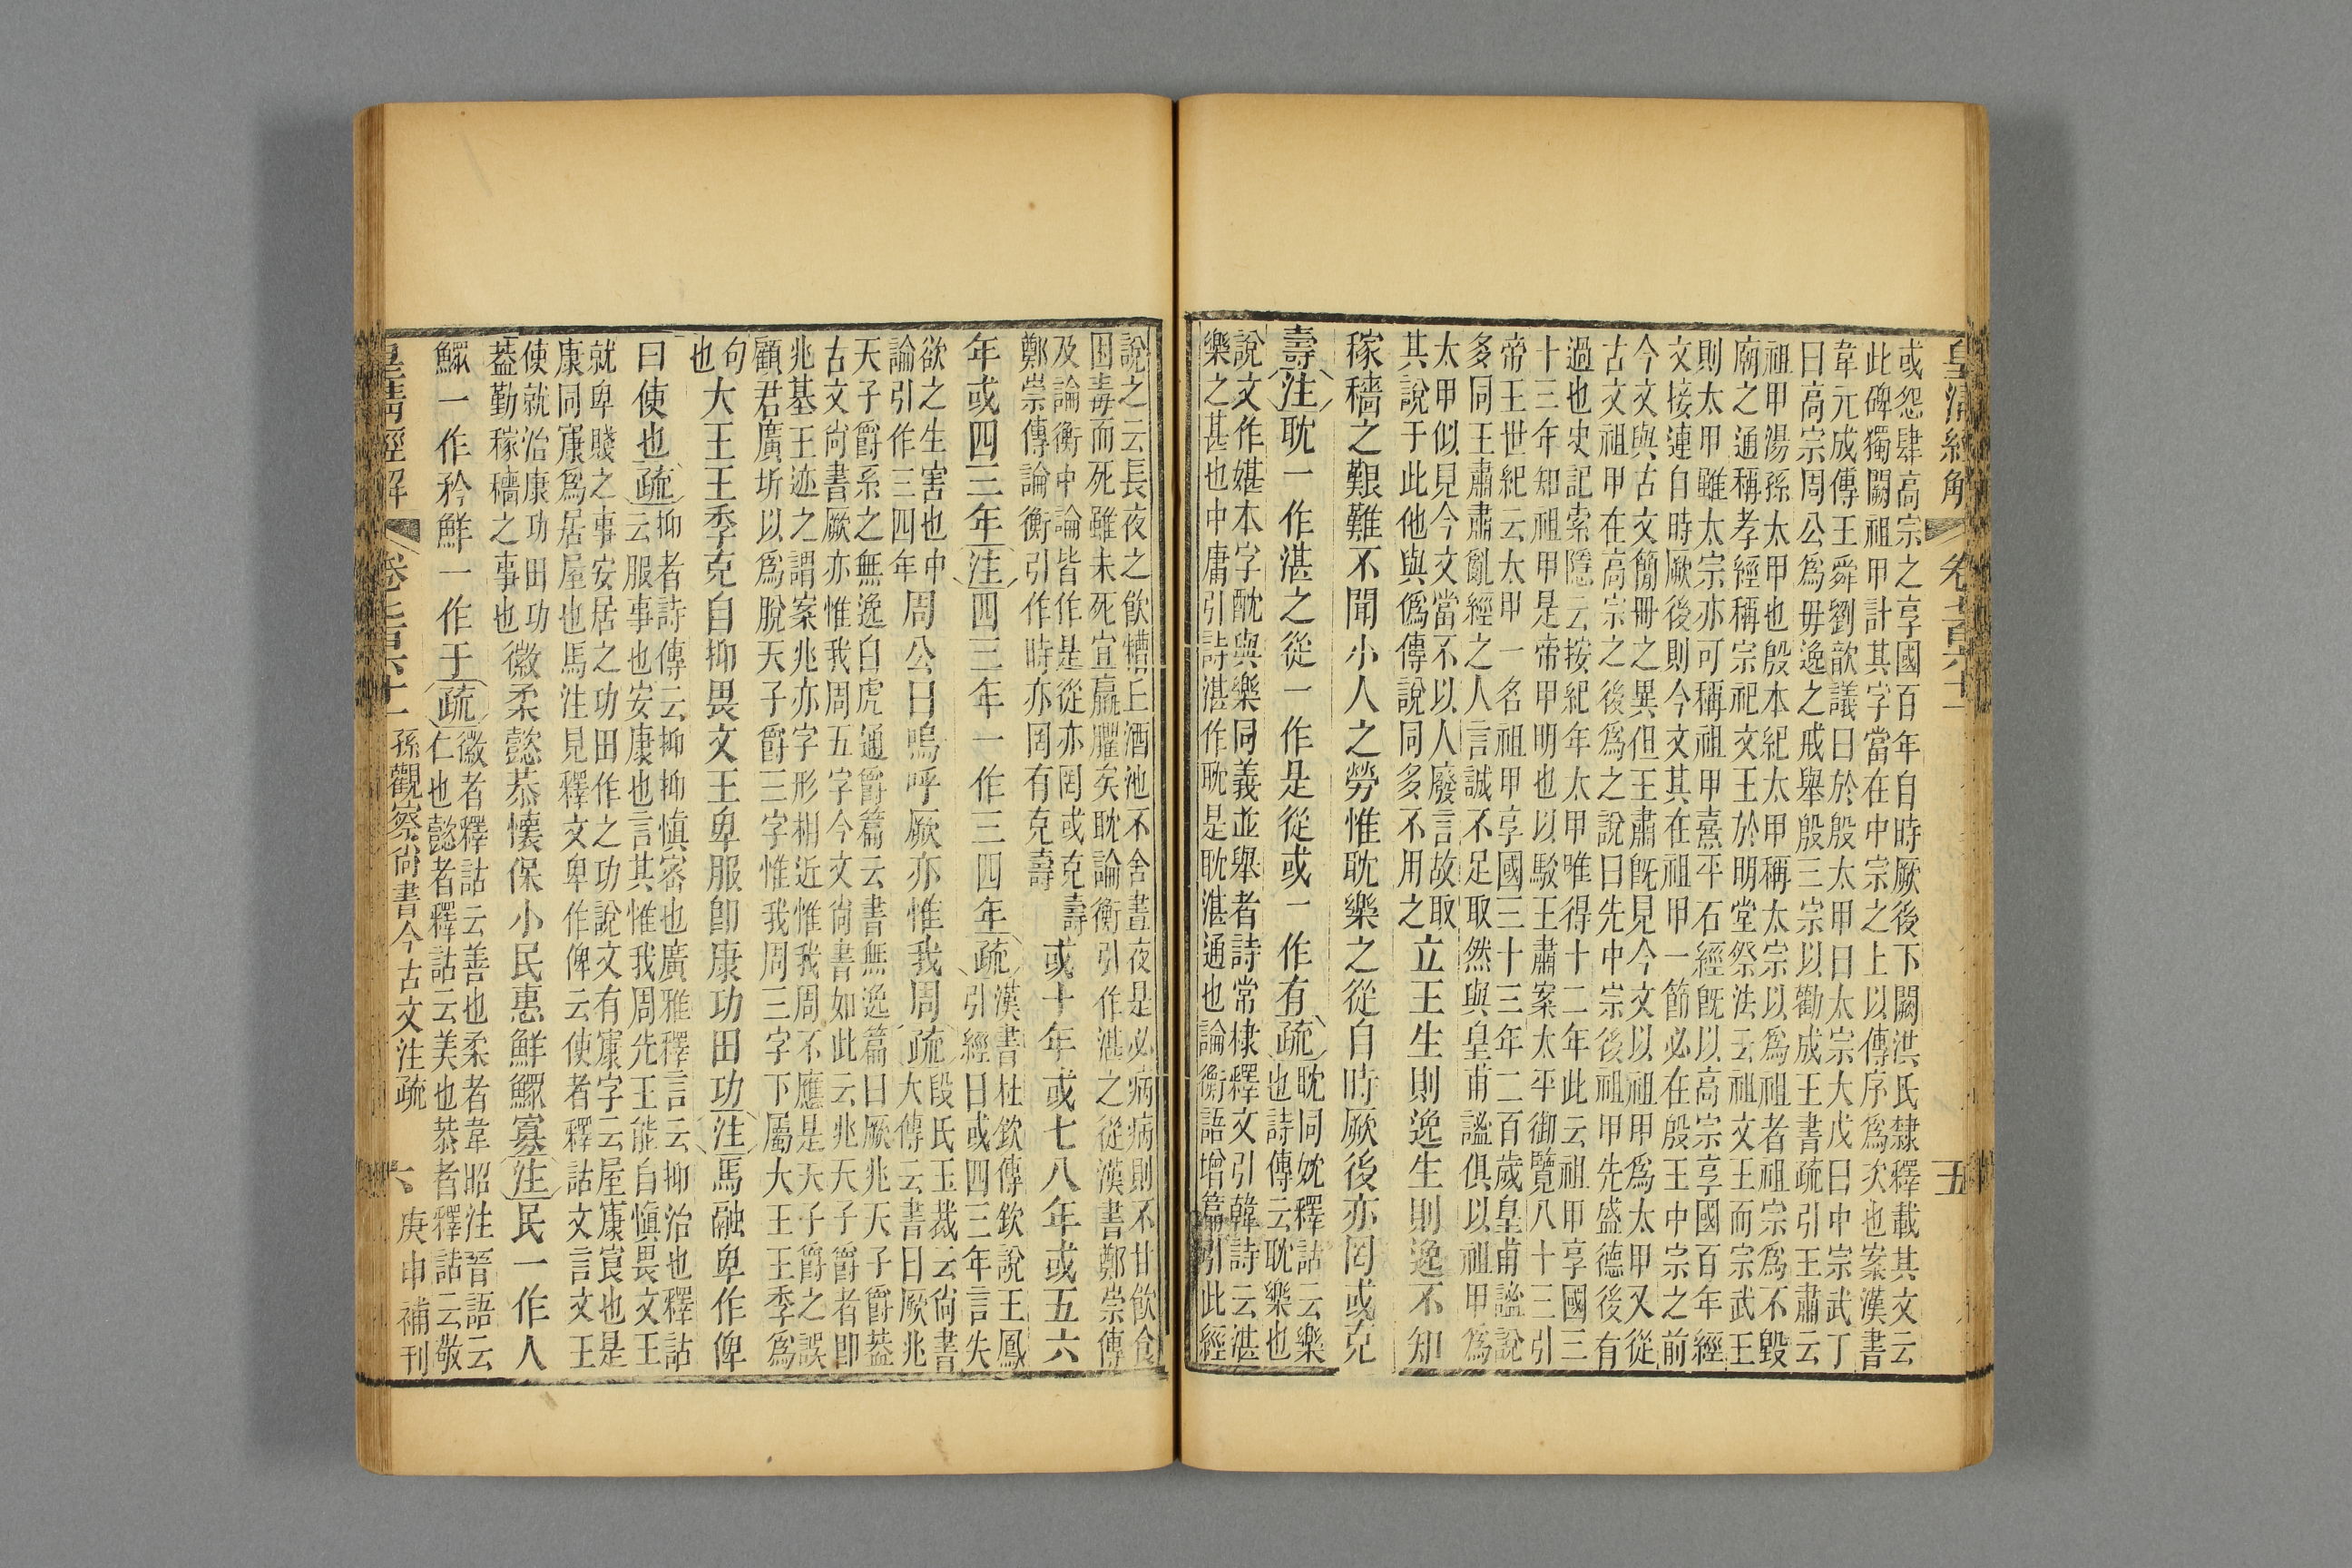 皇清經解 卷七百六十一 五
或怨肆高宗之享國百年自時厥後下闕洪氏隸釋載其文云
此碑獨闕祖甲計其字當在中宗之上以傳序爲次也案漢書
韋元成傳王舜劉歆議曰於殷太甲曰太宗大戊曰中宗武丁
曰高宗周公爲毋逸之戒舉殷三宗以勸成王書疏引王肅云
祖甲湯孫太甲也殷本紀太甲稱太宗以爲祖者祖宗爲不毀
廟之通稱孝經稱宗祀文王於明堂祭法云祖文王而宗武王
則太甲雖太宗亦可稱祖甲熹平石經旣以高宗享國百年經
文接連自時厥後則今文其在祖甲一節必在殷王中宗之前
今文與古文簡冊之異但王肅旣見今文以祖甲爲太甲又從
古文祖甲在高宗之後爲之說曰先中宗後祖甲先盛德後有
過也史記索隱云按紀年太甲唯得十二年此云祖甲享國三
十三年知祖甲是帝甲明也以駁王肅案太平御覽八十三引
帝王世紀云太甲一名祖甲享國三十三年二百歲皇甫謐說
多同王肅肅亂經之人言誠不足取然與皇甫謐俱以祖甲爲
太甲似見今文當不以人廢言故取
其說于此他與僞傳說同多不用之
立王生則逸生則逸不知
稼穡之艱難不聞小人之勞惟耽樂之從自時厥後亦罔或克
壽注耽一作湛之從一作是從或一作有疏耽同妉釋詁云樂
也詩傳云耽樂也
說文作媅本字酖與樂同義並舉者詩常棣釋文引韓詩云湛
樂之甚也中庸引詩湛作耽是耽湛通也論衡語增篇引此經
說之云長夜之飮糟丘酒池不舍晝夜是必病病則不甘飮食
困毒而死雖未死宜羸臞矣耽論衡引作湛之從漢書鄭崇傳
及論衡中論皆作是從亦罔或克壽
鄭崇傳論衡引作時亦罔有克壽
或十年或七八年或五六
年或四三年注四三年一作三四年疏漢書杜欽傳欽說王鳳
引經曰或四三年言失
欲之生害也中
論引作三四年
周公曰嗚呼厥亦惟我周疏段氏玉裁云尙書
大傳云書曰厥兆
天子爵系之無逸白虎通爵篇云書無逸篇曰厥兆天子爵蓋
古文尙書厥亦惟我周五字今文尙書如此云兆天子爵者卽
兆基王迹之謂案兆亦字形相近惟我周不應是天子爵之誤
顧君廣圻以爲脫天子爵三字惟我周三字下屬大王王季爲
句
也
大王王季克自抑畏文王卑服卽康功田功注馬融卑作俾
曰使也疏抑者詩傳云抑抑愼密也廣雅釋言云抑治也釋詁
云服事也安康也言其惟我周先王能自愼畏文王
就卑賤之事安居之功田作之功說文有𡩀字云屋𡩀㝗也是
康同𡩀爲居屋也馬注見釋文卑作俾云使者釋詁文言文王
使就治康功田功
蓋勤稼穡之事也
徽柔懿恭懷保小民惠鮮鰥寡注民一作人
鰥一作矜鮮一作于疏徽者釋詁云善也柔者韋昭注晉語云
仁也懿者釋詁云美也恭者釋詁云敬
皇清經解 卷七百六十一 孫觀察尙書今古文注疏 六 庚申補刊